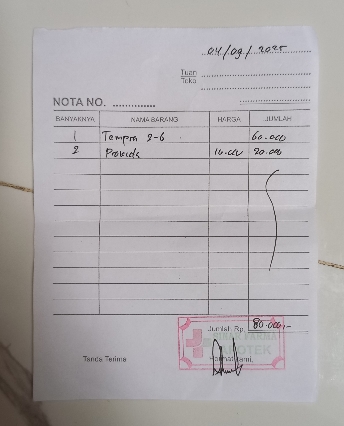 04/09/2025
Tuan
Toko
NOTA NO.
BANYAKNYA NAMA BARANG HARGA JUMLAH
1 Tempra 2-6 60.000
2 10.000 20.000
Jumlah Rp. 80.000,-
APOTEK
Tanda Terima Hormat kami,